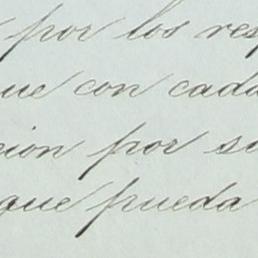 por los res
que con cada
cion por su
que pueda